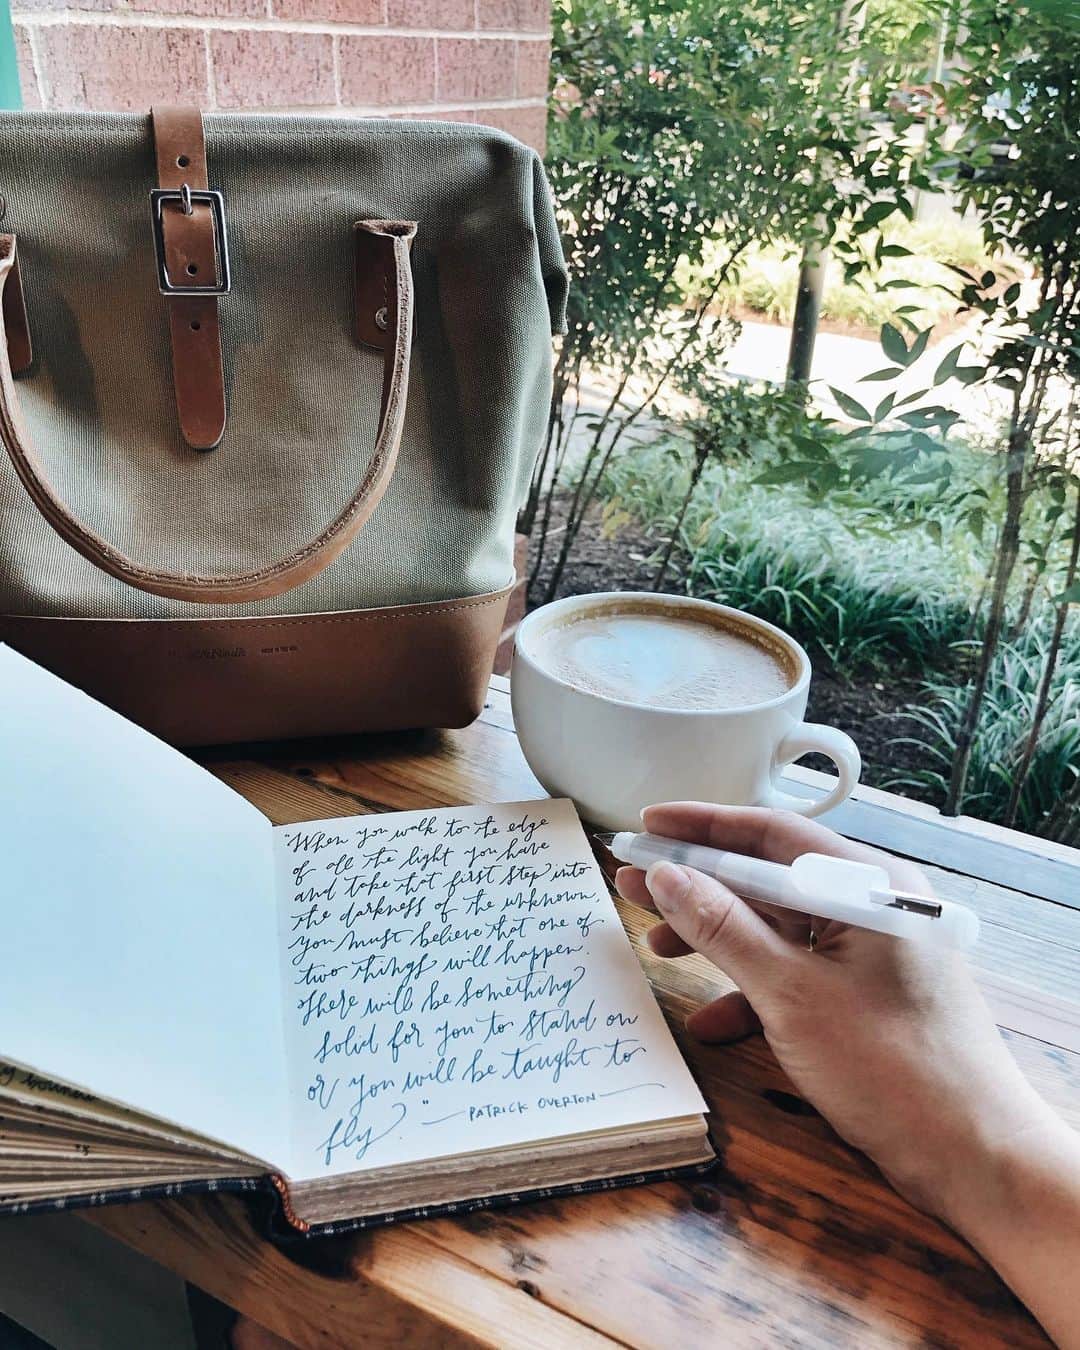 "When you walk to the edge
of all the light you have
and take that first step into
the darkness of the unknown,
you must believe that one of
two things will happen.
There will be something
solid for you to stand on
or you will be taught to
fly."
—PATRICK OVERTON—